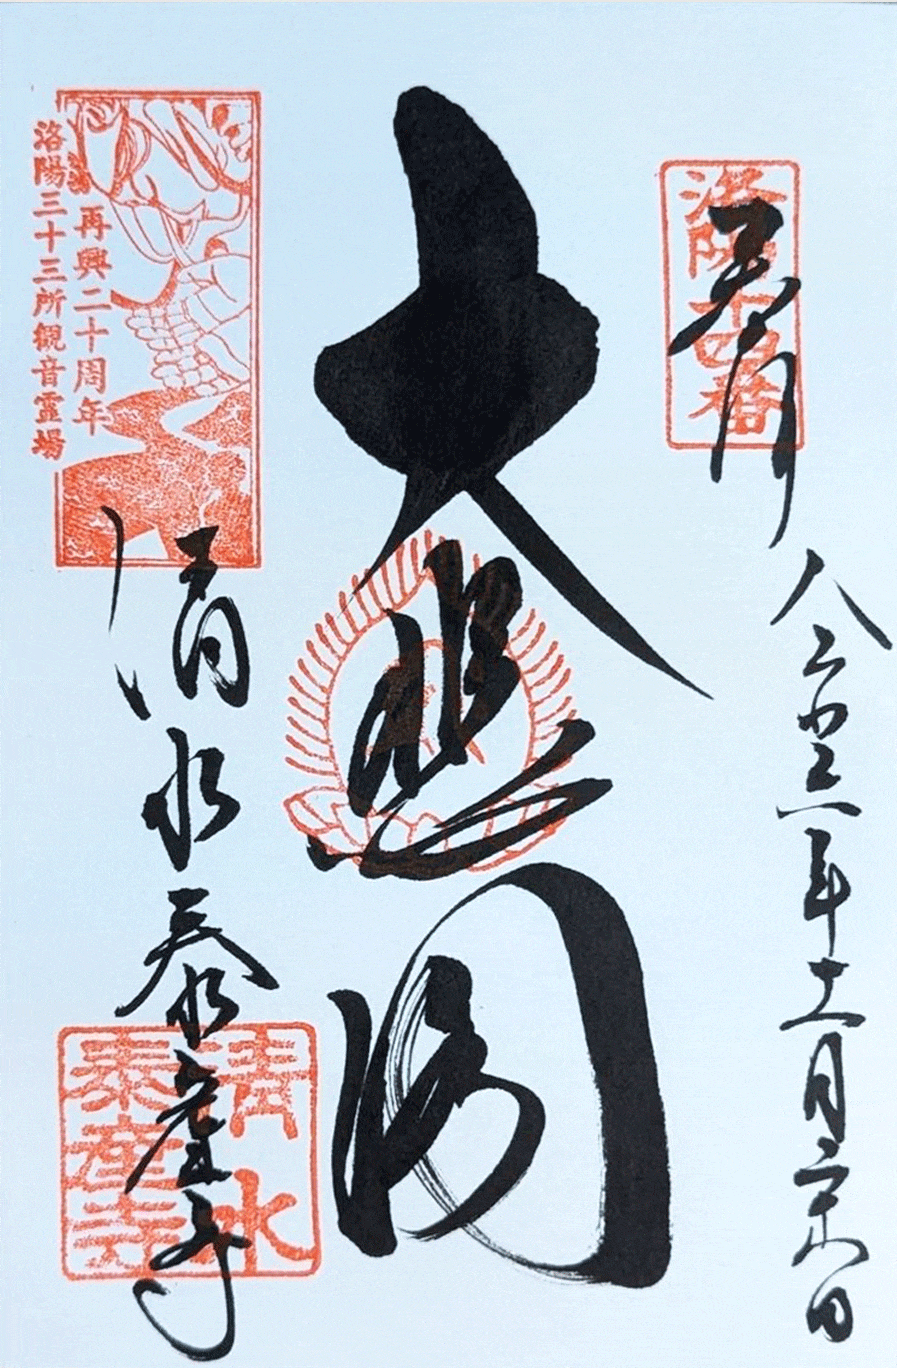 洛陽十四番
奉
年十一月
日
大悲閣
再興二十周年
洛陽三十三所觀音霊場
清水泰産寺
清水
泰産寺